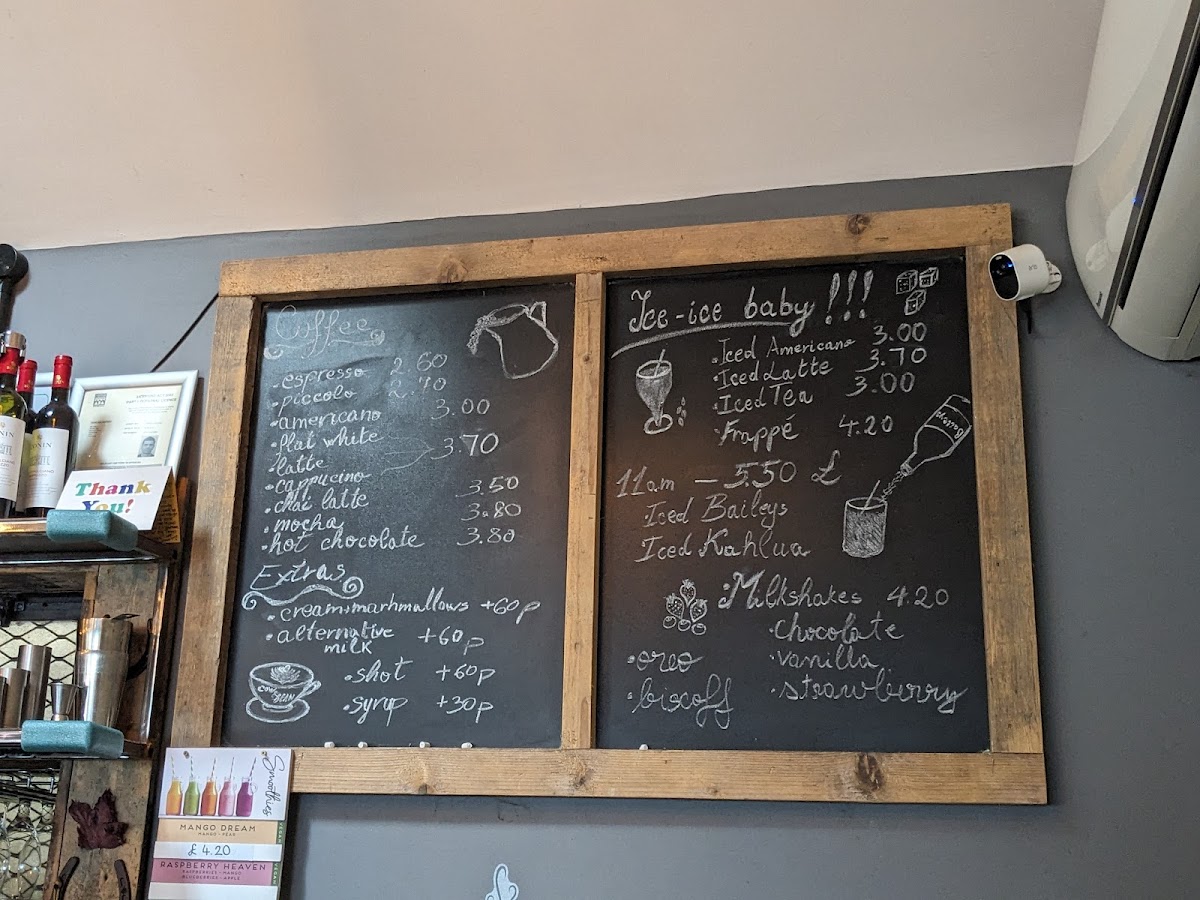 Coffee
• espresso 2.60
• piccolo 2.70
• americano 3.00
• flat white
• latte 3.70
• cappucino
• chai latte 3.50
• mocha 3.80
• hot chocolate 3.80
Extras
• cream+marhmallows +60p
• alternative milk +60p
• shot +60p
• syrup +30p
COW BEAN
Ice-ice baby!!!
• Iced Americano 3.00
• Iced Latte 3.70
• Iced Tea 3.00
• Frappé 4.20
Baileys
11am – 5.50 £
Iced Baileys
Iced Kahlua
• Milkshakes 4.20
• chocolate
• oreo • vanilla
• biscoff • strawberry
Thank
You!
Smoothies
MANGO DREAM
MANGO • PEAR
£ 4.20
RASPBERRY HEAVEN
RASPBERRIES • MANGO
BLUEBERRIES • APPLE